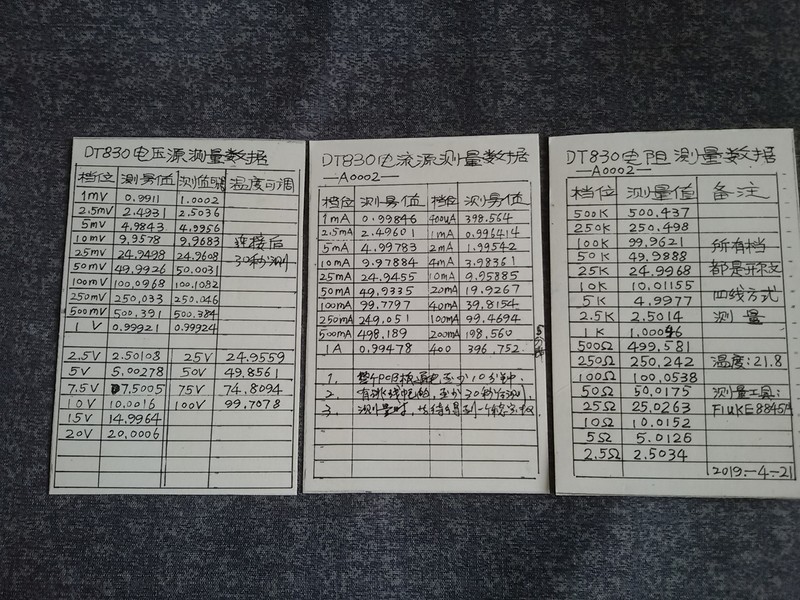 DT830电压源测量数据
档位 测另值 测值 温度可调
1mV 0.9911 1.0002
2.5mV 2.4931 2.5036
5mV 4.9843 4.9956
10mV 9.9578 9.9683 连接后
25mV 24.9498 24.9608 30秒测
50mV 49.9926 50.0031
100mV 100.0968 100.1082
250mV 250.033 250.046
500mV 500.391 500.384
1 V 0.99921 0.99924
2.5V 2.50108 25V 24.9559
5V 5.00278 50V 49.8561
7.5V 7.5005 75V 74.8094
10V 10.0016 100V 99.7078
15V 14.9964
20V 20.0006
DT830电流源测量数据
—A0002—
档位 测另值 档位 测另值
1mA 0.99846 400uA 398.564
2.5mA 2.49601 1mA 0.996414
5mA 4.99783 2mA 1.99542
10mA 9.97884 4mA 3.98361
25mA 24.9455 10mA 9.95885
50mA 49.9335 20mA 19.9267
100mA 99.7797 40mA 39.8154
250mA 249.051 100mA 99.4694
500mA 498.189 200mA 198.560
1A 0.99478 400 396.752
5分钟
1. 整个PCB板通电至少10分钟.
2. 有跳线电的,至少30秒后测,
3. 测量时,
DT830电阻测量数据
—A0002—
档位 测量值 备注
500K 500.437
250K 250.498
100K 99.9621 所有档
50K 49.9888 都是开尔文
25K 24.9968
10K 10.01155 四线方式
5K 4.9977
2.5K 2.5014 测量
1K 1.00096
500Ω 499.581
250Ω 250.242 温度:21.8
100Ω 100.0538
50Ω 50.0175 测量工具:
25Ω 25.0263 FlUKE8845A
10Ω 10.0152
5Ω 5.0126
2.5Ω 2.5034
2019-4-21